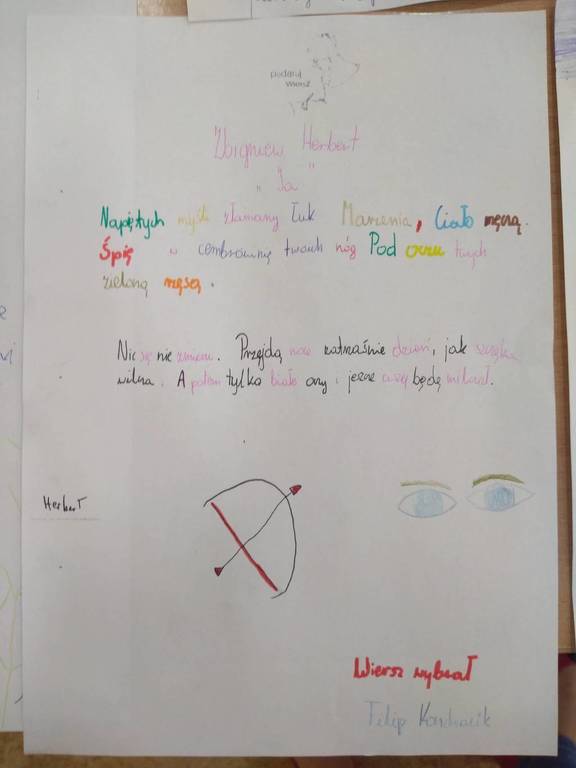 podaruj
wiersz
Zbigniew Herbert
"Ja"
Napiętych myśli złamany łuk Marzenia, Ciało męczą.
Śpię w cembrowinę twoich nóg Pod oczu twych
zieloną rzęsą.
Nic się nie zmieni. Przejdą noce zatrzaśnie dzień, jak szczęka
wilcza. A potem tylko białe oczy i jeszcze ciszej będę milczał.
Herbert
Wiersz wybrał
Filip